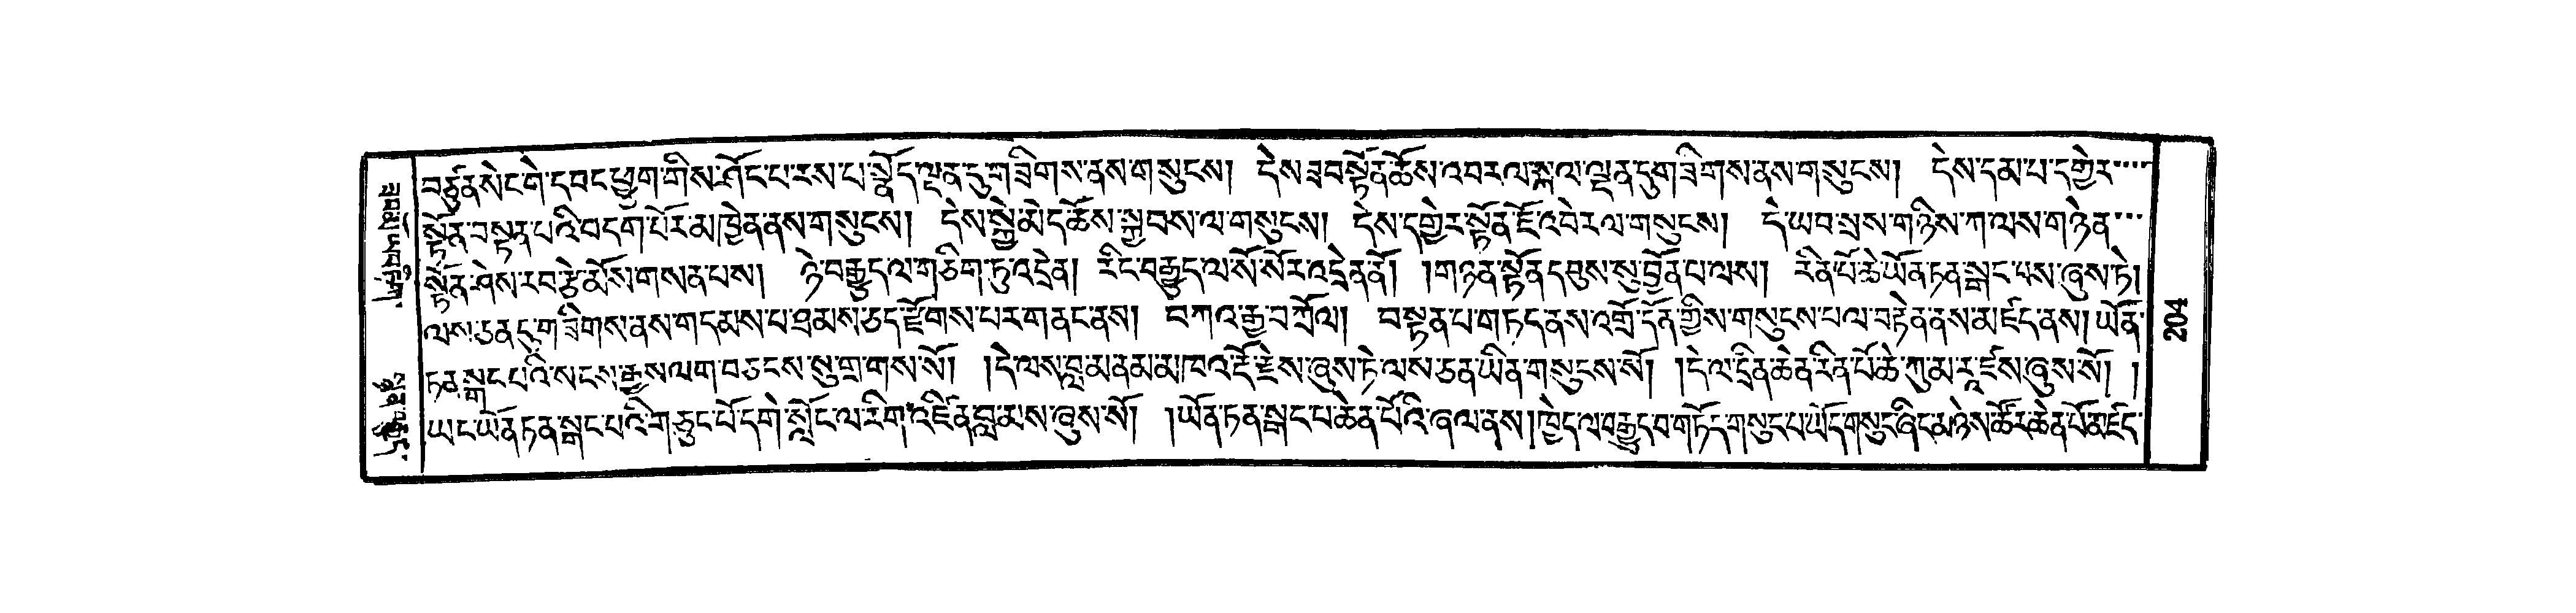 བཙུན་སེང་གེ་དབང་ཕྱུག་གིས་ཤོང་པ་རས་པ་སྣོད་ལྡན་དུ་གཟིགས་ནས་གསུངས། དེས་ཟབ་སྟོན་ཆོས་འབར་ལ་སྐལ་ལྡན་དུ་གཟིགས་ནས་གསུངས། དེས་དམ་པ་དགྱེར་
སྟོན་བསྟན་པའི་བདག་པོར་མཁྱེན་ནས་གསུངས། དེས་སྐྱེ་མེད་ཆོས་སྐྱབས་ལ་གསུངས། དེས་དགྱེར་སྟོན་ཇོ་འབེར་ལ་གསུངས། དེ་ཡབ་སྲས་གཉིས་ཀ་ལས་གཉེན་
སྟོན་ཤེས་རབ་རྩེ་མོས་གསན་པས། ཉེ་བརྒྱུད་ལ་གཅིག་ཏུ་འདྲེན། རིང་བརྒྱུད་ལ་སོ་སོར་འདྲེན་ནོ། །གཉན་སྟོན་དབུས་སུ་བྱོན་པ་ལས། རིན་པོ་ཆེ་ཡོན་ཏན་སྒང་པས་ཞུས་ཏེ།
ལས་ཅན་དུ་གཟིགས་ནས་གདམས་པ་ཐམས་ཅད་རྫོགས་པར་གནང་ནས། བཀའ་རྒྱ་བཀྲོལ། བསྟན་པ་གཏད་ནས་འགྲོ་དོན་གྱིས་གསུངས་པ་ལ་བརྟེན་ནས་མཛད་ནས། ཡོན་
ཏན་སྒང་པའི་སངས་རྒྱས་ལག་བཅངས་སུ་གྲགས་སོ། །དེ་ལས་བླ་མ་ནམ་མཁའ་རྡོ་རྗེས་ཞུས་ཏེ་ལས་ཅན་ཡིན་གསུངས་སོ། །དེ་ལ་དྲིན་ཆེན་རིན་པོ་ཆེ་ཀུ་མ་རཱ་ཛས་ཞུས་སོ། །
ཡང་ཡོན་ཏན་སྒང་པའི་གཅུང་པོ་དགེ་སློང་ལ་རིག་འཛིན་བླ་མས་ཞུས་སོ། །ཡོན་ཏན་སྒང་པ་ཆེན་པོའི་ཞལ་ནས། ཁྱེད་ལ་བརྒྱུད་བ་གཏོད་གསུང་པ་ཡོད་གསུང་ཞིང་མཉེས་ཚོར་ཆེན་པོ་མཛད་